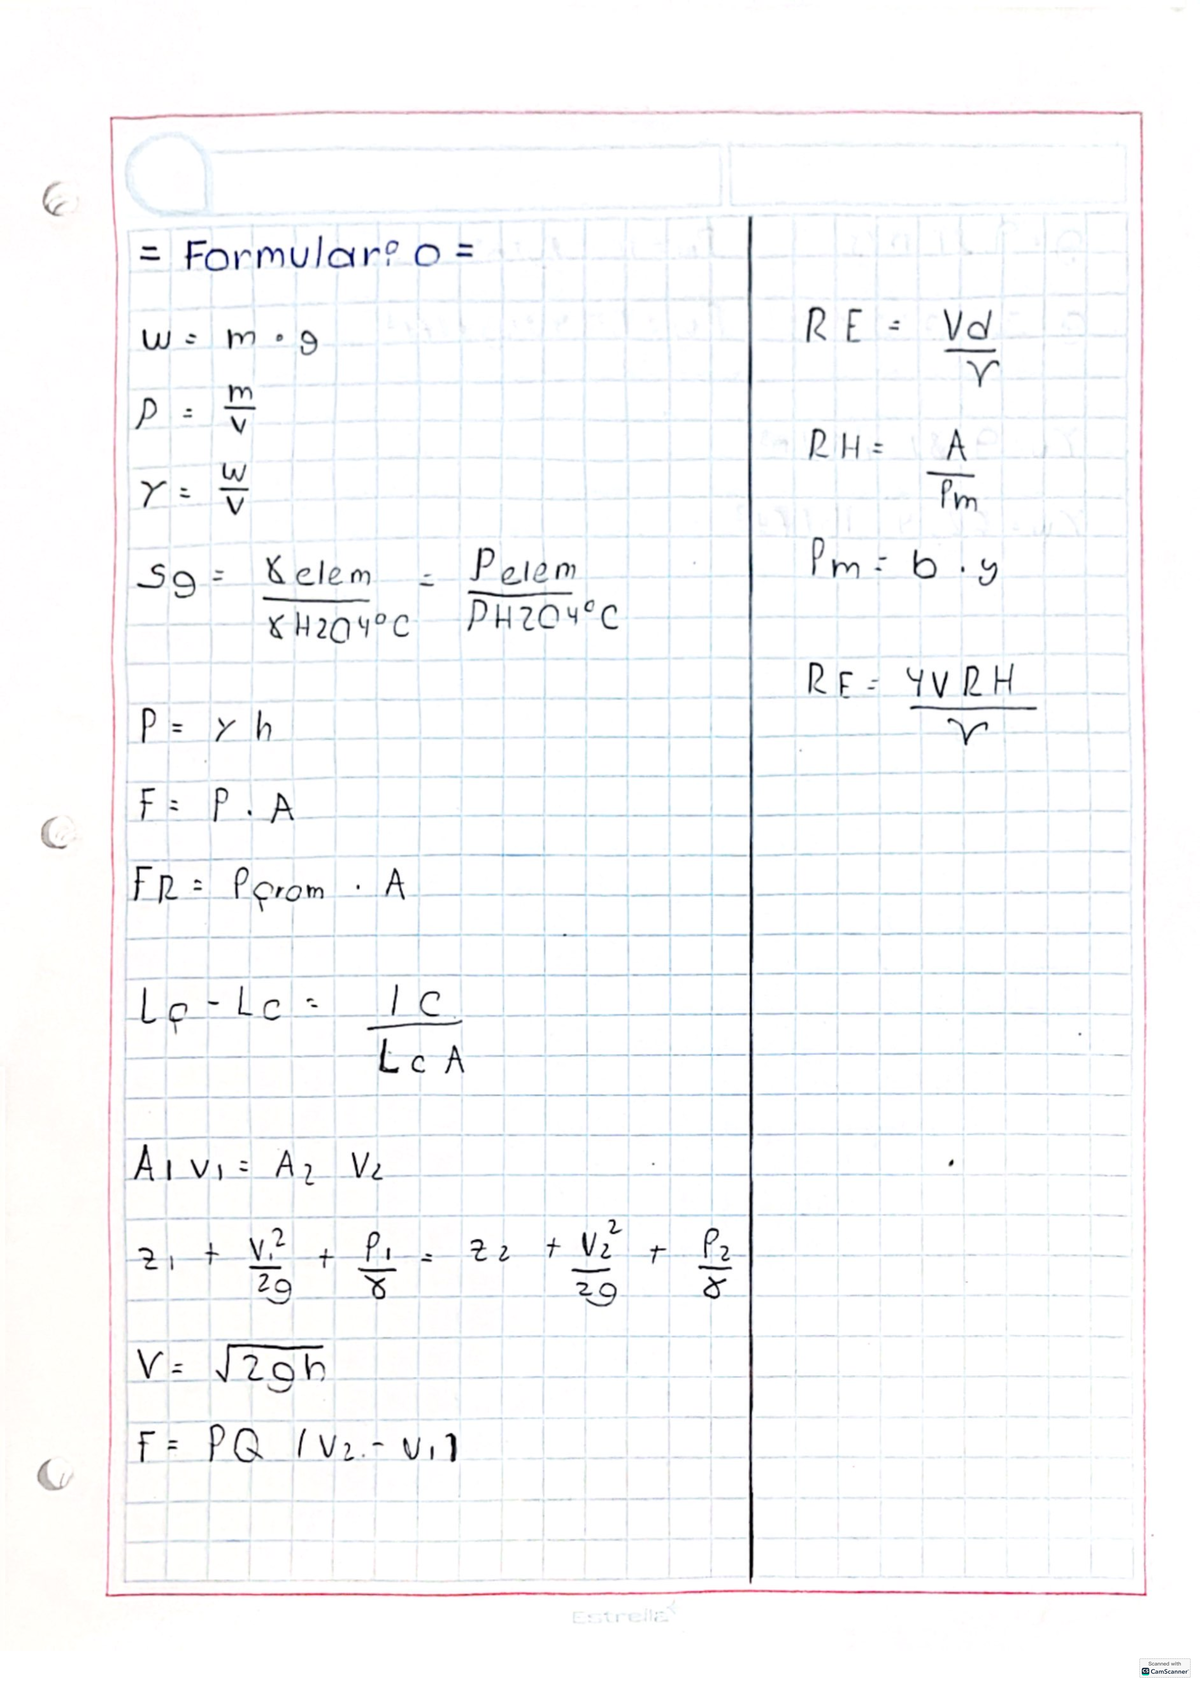 = Formulario =
W = m · g
ρ = m/V
γ = W/V
Sg = γelem/γH2O4°C = ρelem/ρH2O4°C
P = γ h
F = P · A
FR = Pprom · A
Lp - Lc = IC/LcA
A1 V1 = A2 V2
z1 + V1²/2g + P1/γ = z2 + V2²/2g + P2/γ
V = √2gh
F = ρQ (V2 - V1)
RE = Vd/ν
RH = A/Pm
Pm = b · y
RE = 4VRH/ν
Estrella
Scanned with
CamScanner